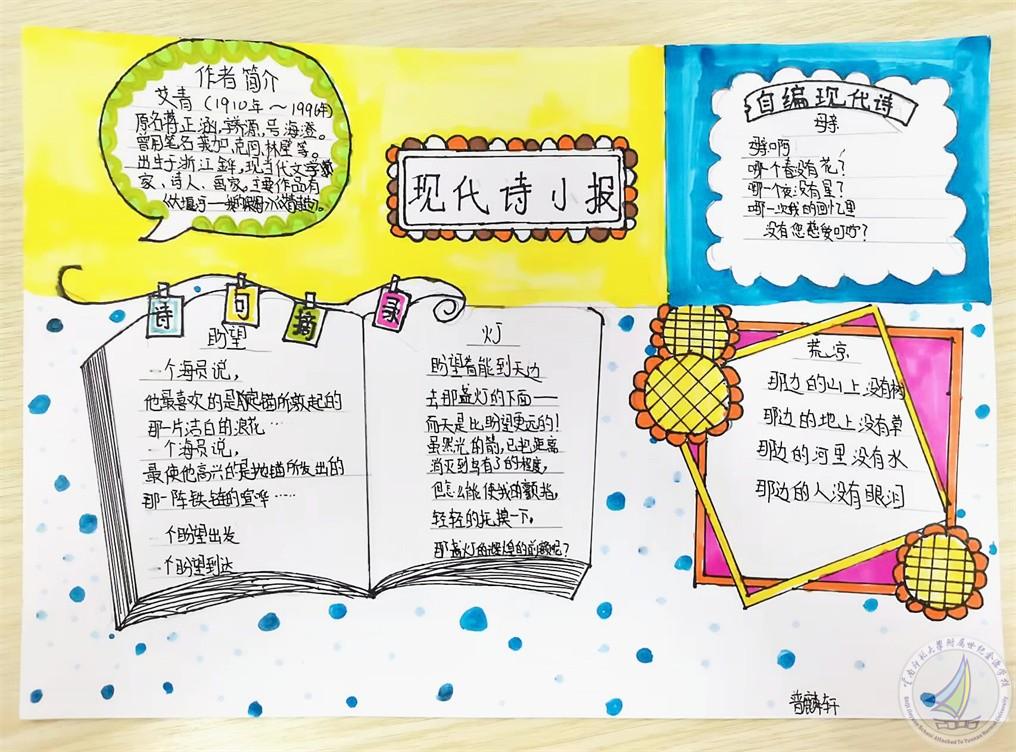 作者简介
艾青（1910年～1996年）
原名蒋正涵，字养源，号海澄。
曾用笔名莪加，克阿，林壁等。
出生于浙江金华，现当代文学
家、诗人、画家。主要作品有
现代诗小报
自编现代诗
母亲
母亲啊
哪个春没有花？
哪一个夜没有星？
哪一次我的回忆里
没有您慈爱叮咛？
诗句摘录
盼望
一个海员说，
他最喜欢的是起锚所激起的
那一片洁白的浪花…
一个海员说，
最使他高兴的是抛锚所发出的
那一阵铁链的喧哗……
一个盼望出发
一个盼望到达
灯
盼望着能到天边
去那盏灯的下面——
而天是比盼望更远的！
虽然光的箭，已把距离
消灭到乌有了的程度，
但怎么能使我的颤光，
轻轻的抚摸一下，
那盏灯的辉煌的前额呢？
荒凉
那边的山上没有树
那边的地上没有草
那边的河里没有水
那边的人没有眼泪
普麟轩